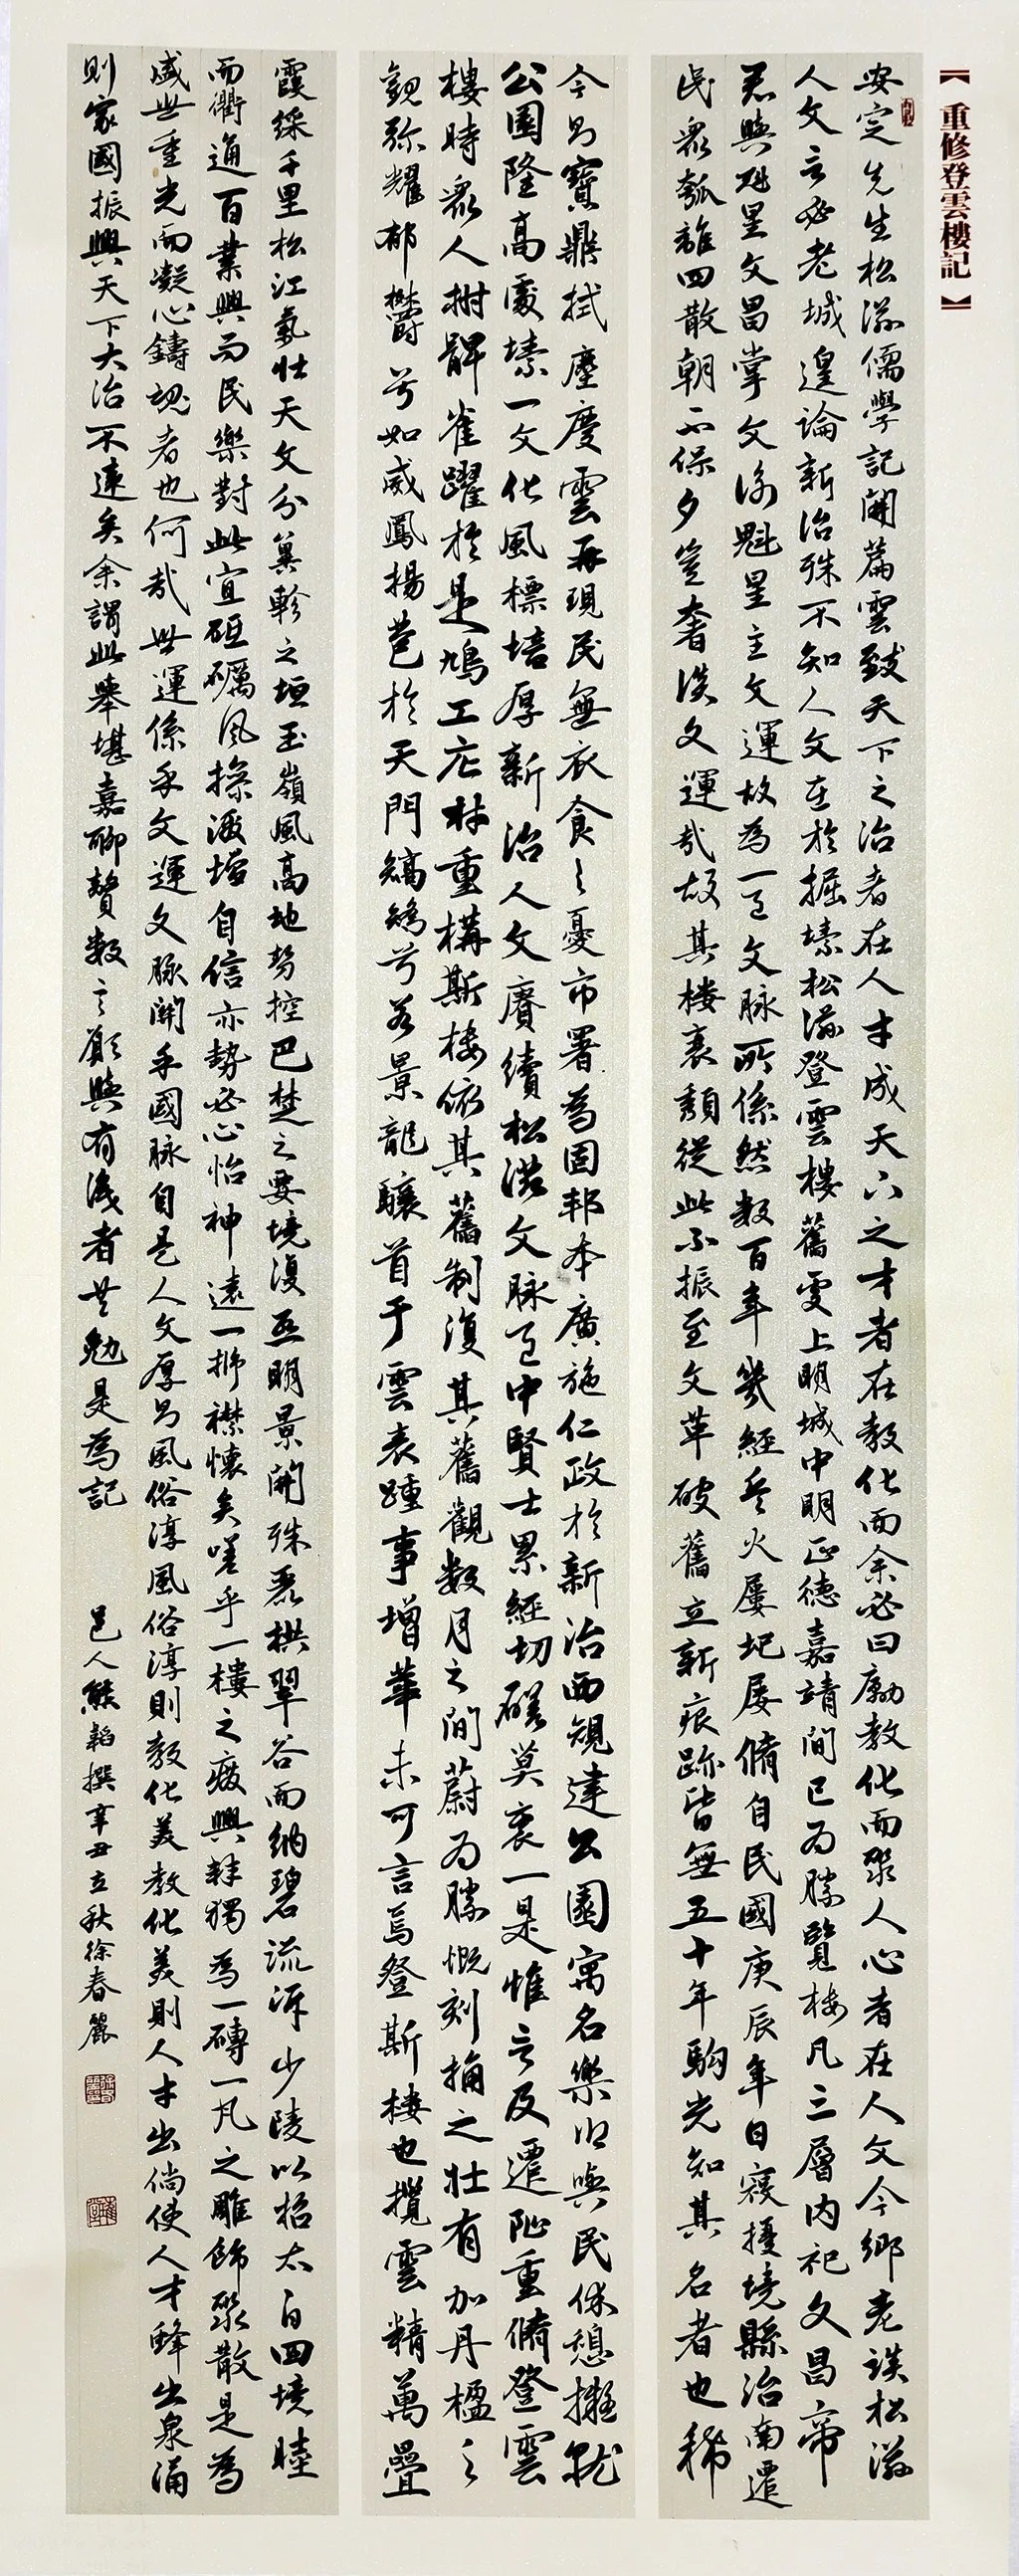 【重修登雲樓記】
安定先生松滋儒學記開篇云致天下之治者在人才成天下之才者在教化而余必曰勵教化而聚人心者在人文今鄉老談松滋
人文言必老城遑論新治殊不知人文在於掘墳松滋登雲樓舊雯上明城中明正德嘉靖間已為勝覽樓凡三層內祀文昌帝
君與魁星文昌掌文衡魁星主文運故為一邑文脈所係然數百年幾經兵火屢圮屢脩自民國庚辰年日寇擾境縣治南遷
民眾瓠離四散朝不保夕豈奢談文運哉故其樓衰頹從此不振至文革破舊立新痕跡皆無五十年駒光知其名者也稀
今乃寶鼎拭塵慶雲再現民無衣食之憂市署為固邦本廣施仁政於新治西規建公園寓名樂水與民休憩擬就
公園隆高處墳一文化風標培厚新治人文賡續松滋文脈邑中賢士累經切磋莫衷一是惟言及遷阯重脩登雲
樓時眾人拊髀雀躍於是鳩工庀材重構斯樓依其舊制復其舊觀數月之間蔚為勝慨刻桷之壯有加丹楹之
觀弥耀郁欝兮如威鳳揚苞於天門矯矯兮若景龍驤首于雲表踵事增華未可言焉登斯樓也攬雲精萬疊
霞綵千里松江氣壯天文分翼軫之垣玉嶺風高地勢控巴楚之要境復亟明景開殊麗拱翠谷而納碧流泝少陵以招太白四境睦
而衢通百業興而民樂對此宜砥礪風操激增自信亦勢必心怡神遠一摅襟懷矣嗟乎一樓之廢興非獨為一磚一瓦之雕飾聚散是為
盛世重光而凝心鑄魂者也何哉世運係乎文運文脈關乎國脈自是人文厚乃風俗淳風俗淳則教化美教化美則人才出倘使人才蜂出泉涌
則家國振興天下大治不遠矣余謂此舉堪嘉聊贅數言願與有識者共勉是為記
邑人熊韜撰辛丑立秋徐春麗